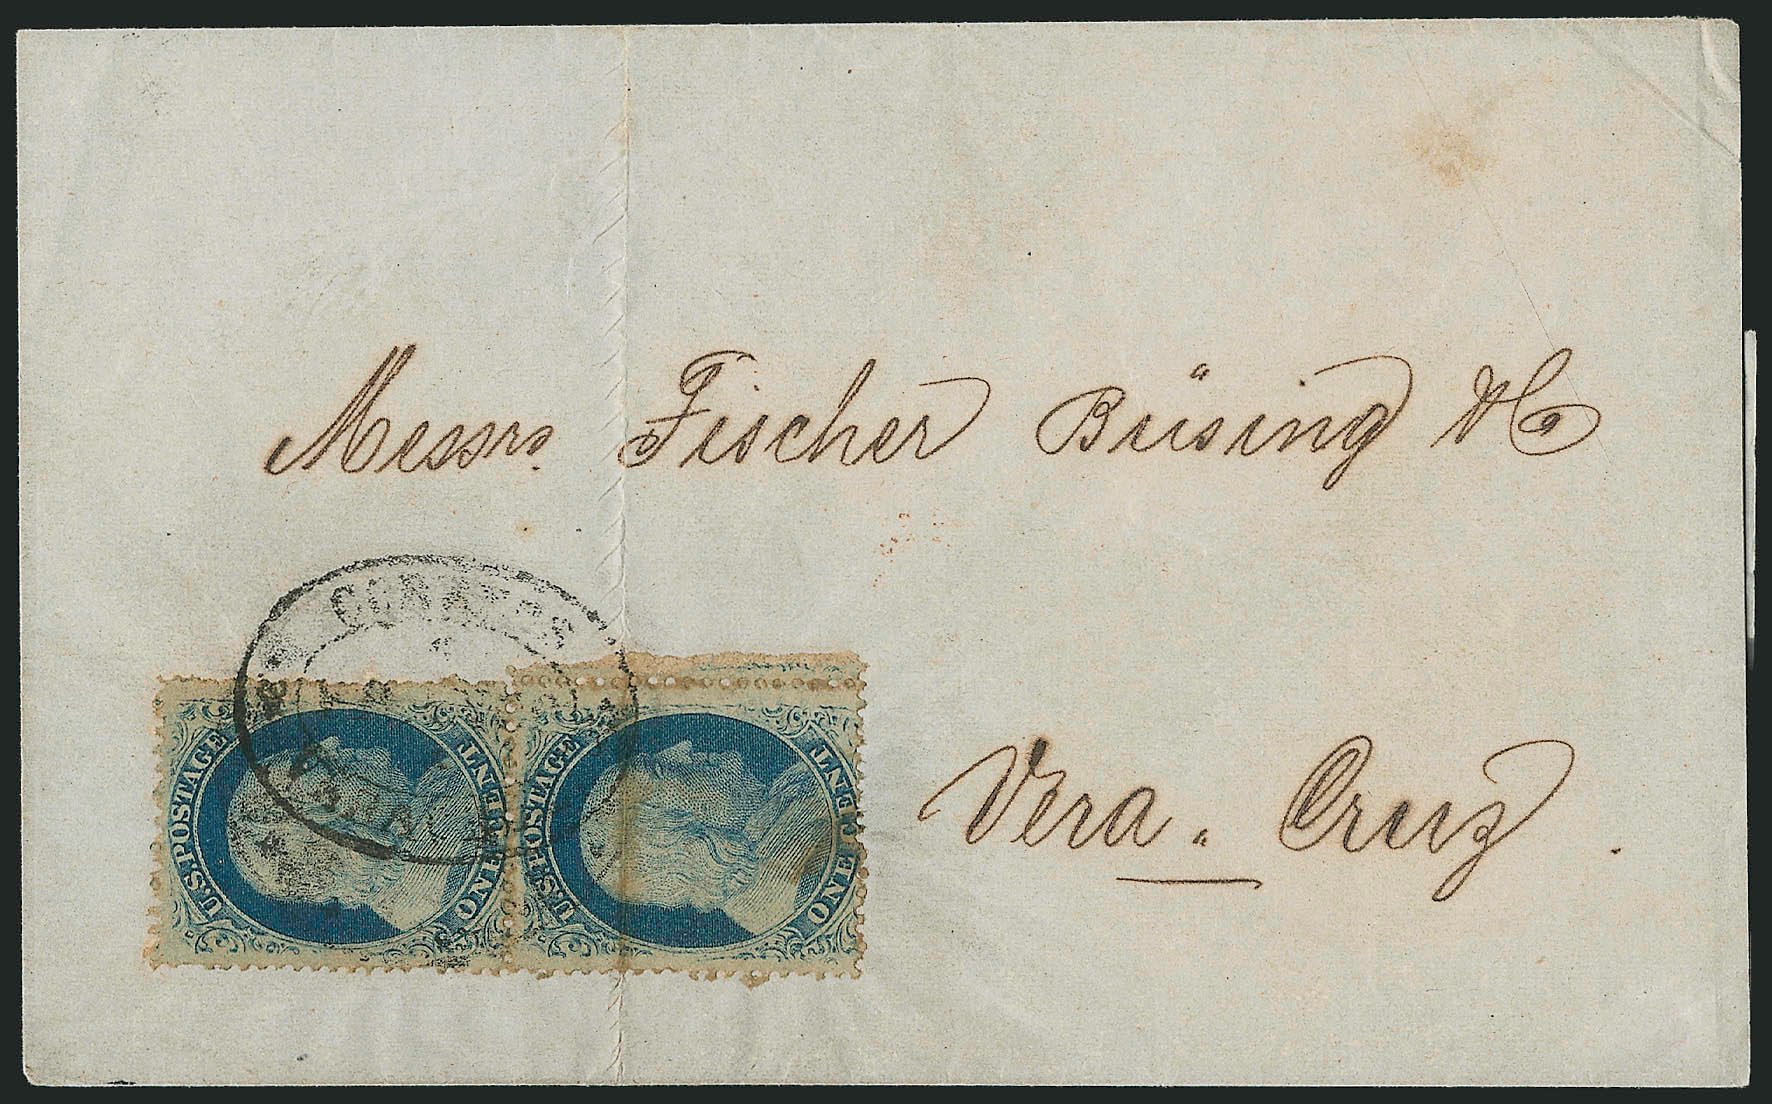 Messrs. Fischer Büsing & Co
Vera. Cruz.
CORREOS
U.S. POSTAGE
ONE CENT
U.S. POSTAGE
ONE CENT